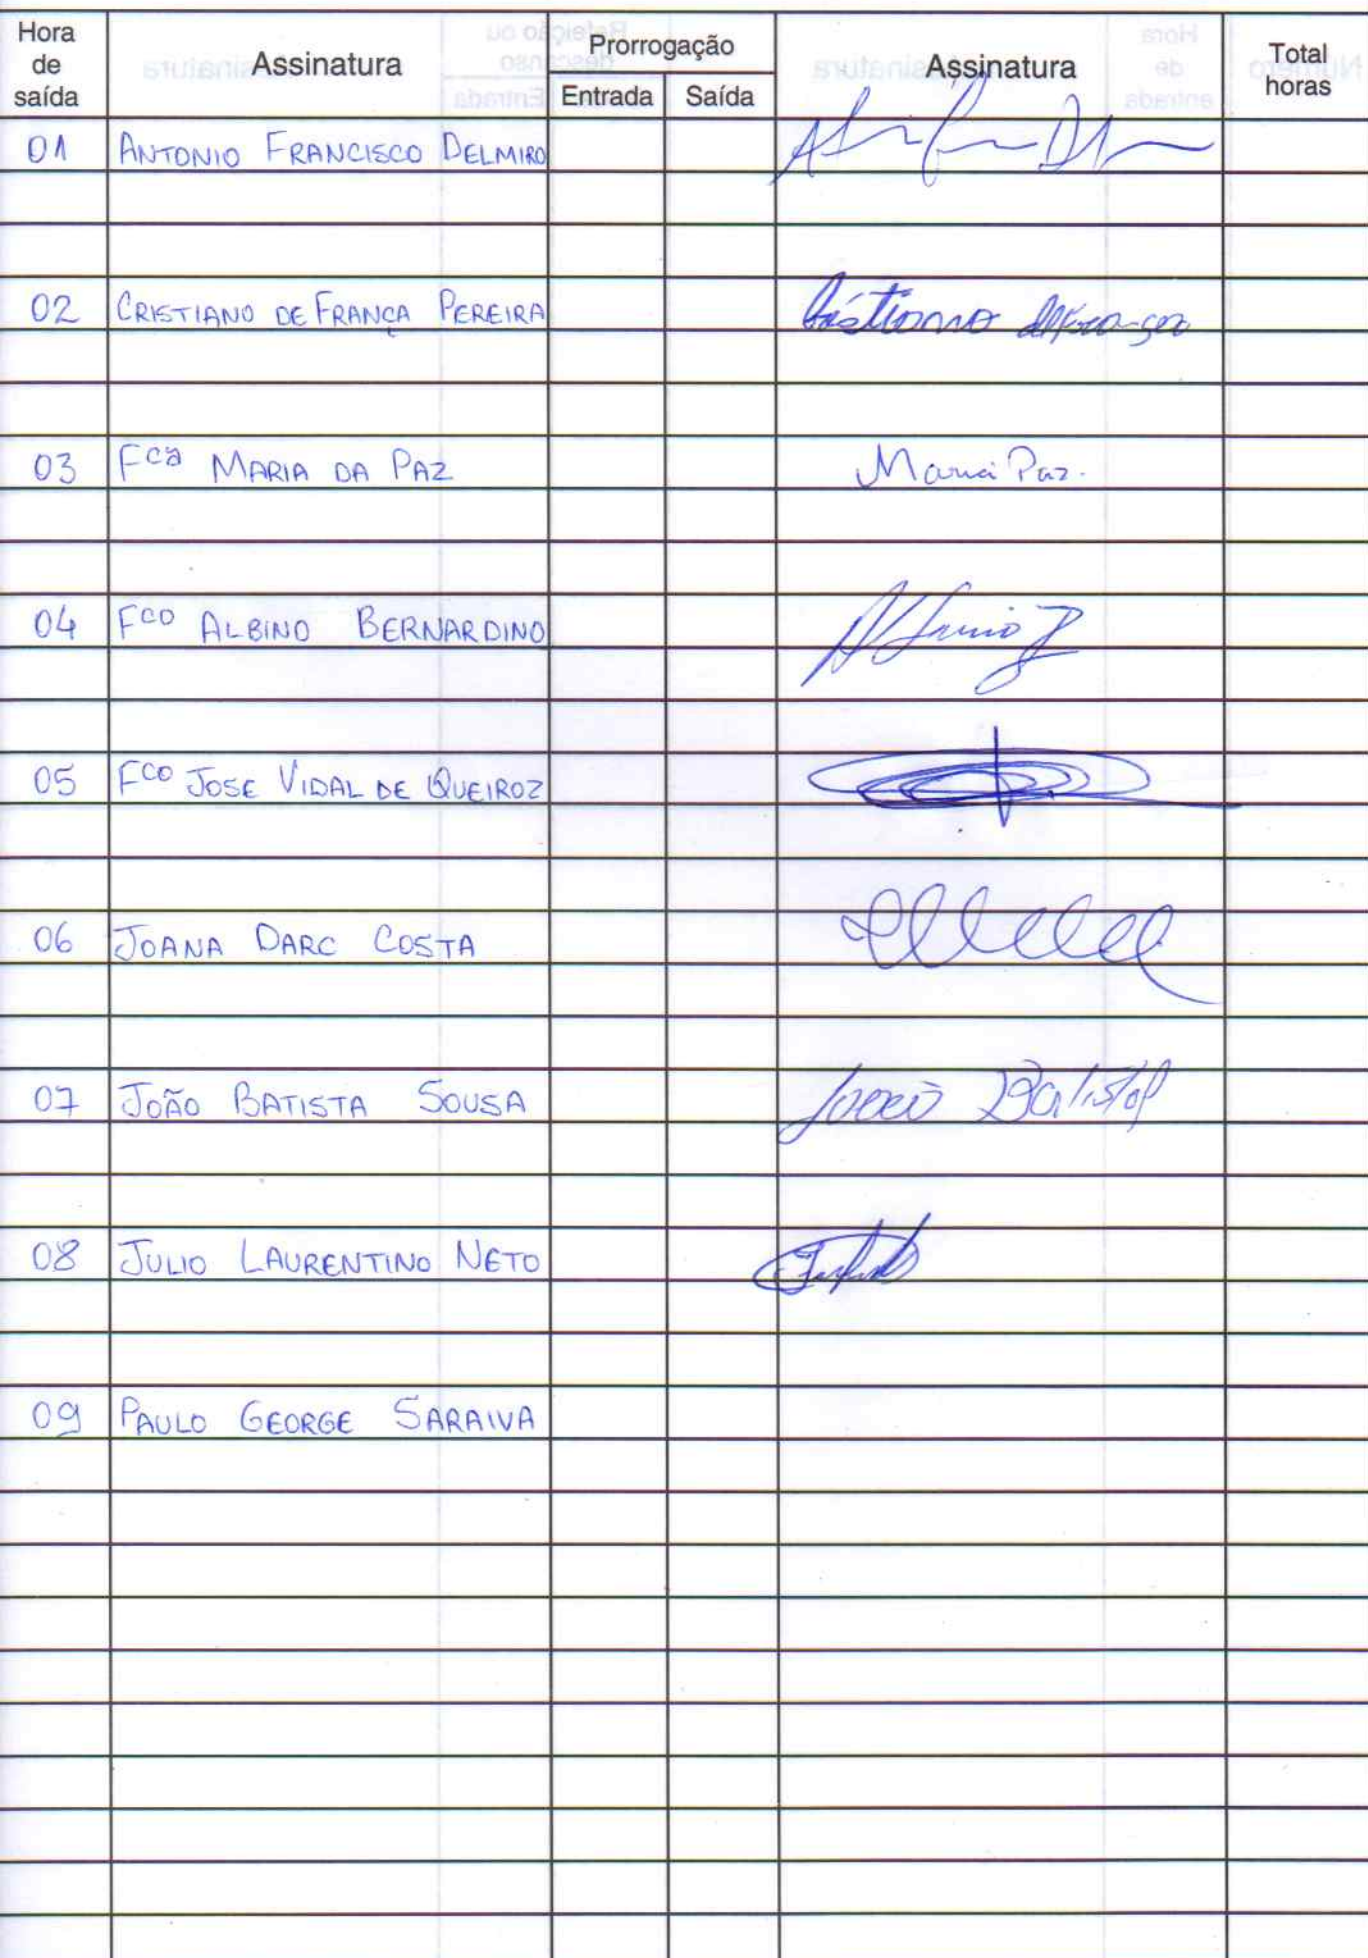 Hora de saída Assinatura Prorrogação Assinatura Total horas
Entrada Saída
01 ANTONIO FRANCISCO DELMIRO
02 CRISTIANO DE FRANÇA PEREIRA
03 Fca MARIA DA PAZ Maria Paz.
04 Fco ALBINO BERNARDINO
05 Fco JOSE VIDAL DE QUEIROZ
06 JOANA DARC COSTA
07 JOÃO BATISTA SOUSA João Batista
08 JULIO LAURENTINO NETO
09 PAULO GEORGE SARAIVA